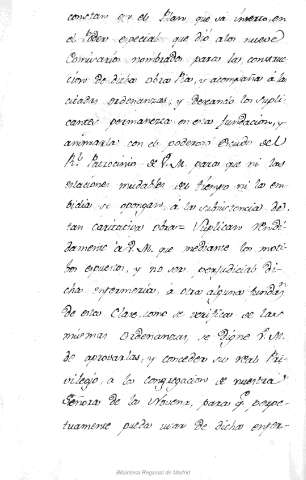 constan por el Plan que va inserto en
el Poder especial que dió a los nueve
Comisarios nombrados para la construc
cion de dicha obra Pia, y acompaña à la
citadas ordenanzas, y deseando los supli
cantes permanezca en esta fundacion, y
animarla con el poderoso Escudo del
Rl. Patrocinio de V.M. para que ni las
estaciones mudables del tiempo ni la em
bidia se opongan, à la subsistencia de
tan caritativa obra= Suplican rendi
damente à V.M. que mediante los moti
bos expuestos, y no ser perjudicial di
cha enfermeria, à otra alguna fundazn.
de esta Clase, como se verifica de las
mismas Ordenanzas, se digne V.M.
de aprovarlas, y conceder su real Pri
vilegio, a la congregacion de nuestra
Señora de la Novena, para q.e perpe
tuamente pueda usar de dicha enfer-
Biblioteca Regional de Madrid